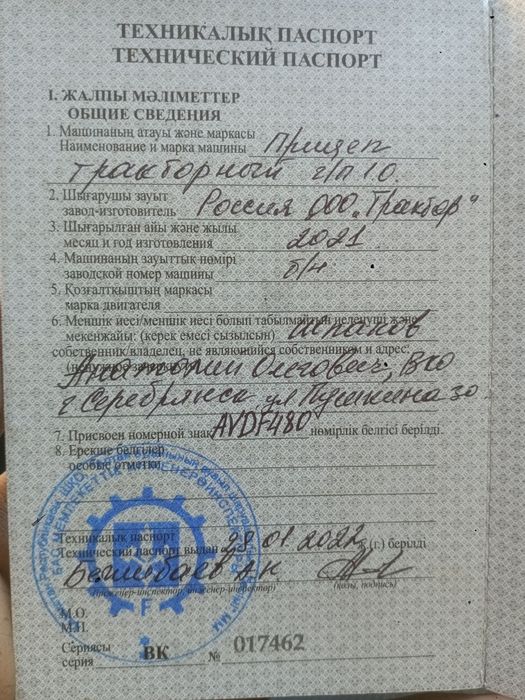 ТЕХНИКАЛЫҚ ПАСПОРТ
ТЕХНИЧЕСКИЙ ПАСПОРТ
I. ЖАЛПЫ МӘЛІМЕТТЕР
ОБЩИЕ СВЕДЕНИЯ
1. Машинаның атауы және маркасы
Наименование и марка машины Прицеп
тракторный г/п 10.
2. Шығарушы зауыт
завод-изготовитель Россия ООО „Трактор"
3. Шығарылған айы және жылы
месяц и год изготовления 2021
4. Машинаның зауыттық нөмірі
заводской номер машины б/н
5. Қозғалтқыштың маркасы
марка двигателя
6. Меншік иесі/меншік иесі болып табылмайтын иеленуші және
мекенжайы: (керек емесі сызылсын) Испанов
собственник/владелец, не являющийся собственником и адрес:
Анатолий Олегович, ВКО
г Серебрянск ул Пушкина 30
7. Присвоен номерной знак AVDF480 нөмірлік белгісі берілді.
8. Ерекше белгілер
особые отметки
Техникалық паспорт
Технический паспорт выдан 01.2022 ж.(г.) берілді
А.К.
(инженер-инспектор, инженер-инспектор) (қолы, подпись)
М.О.
М.П.
Сериясы
серия ВК № 017462